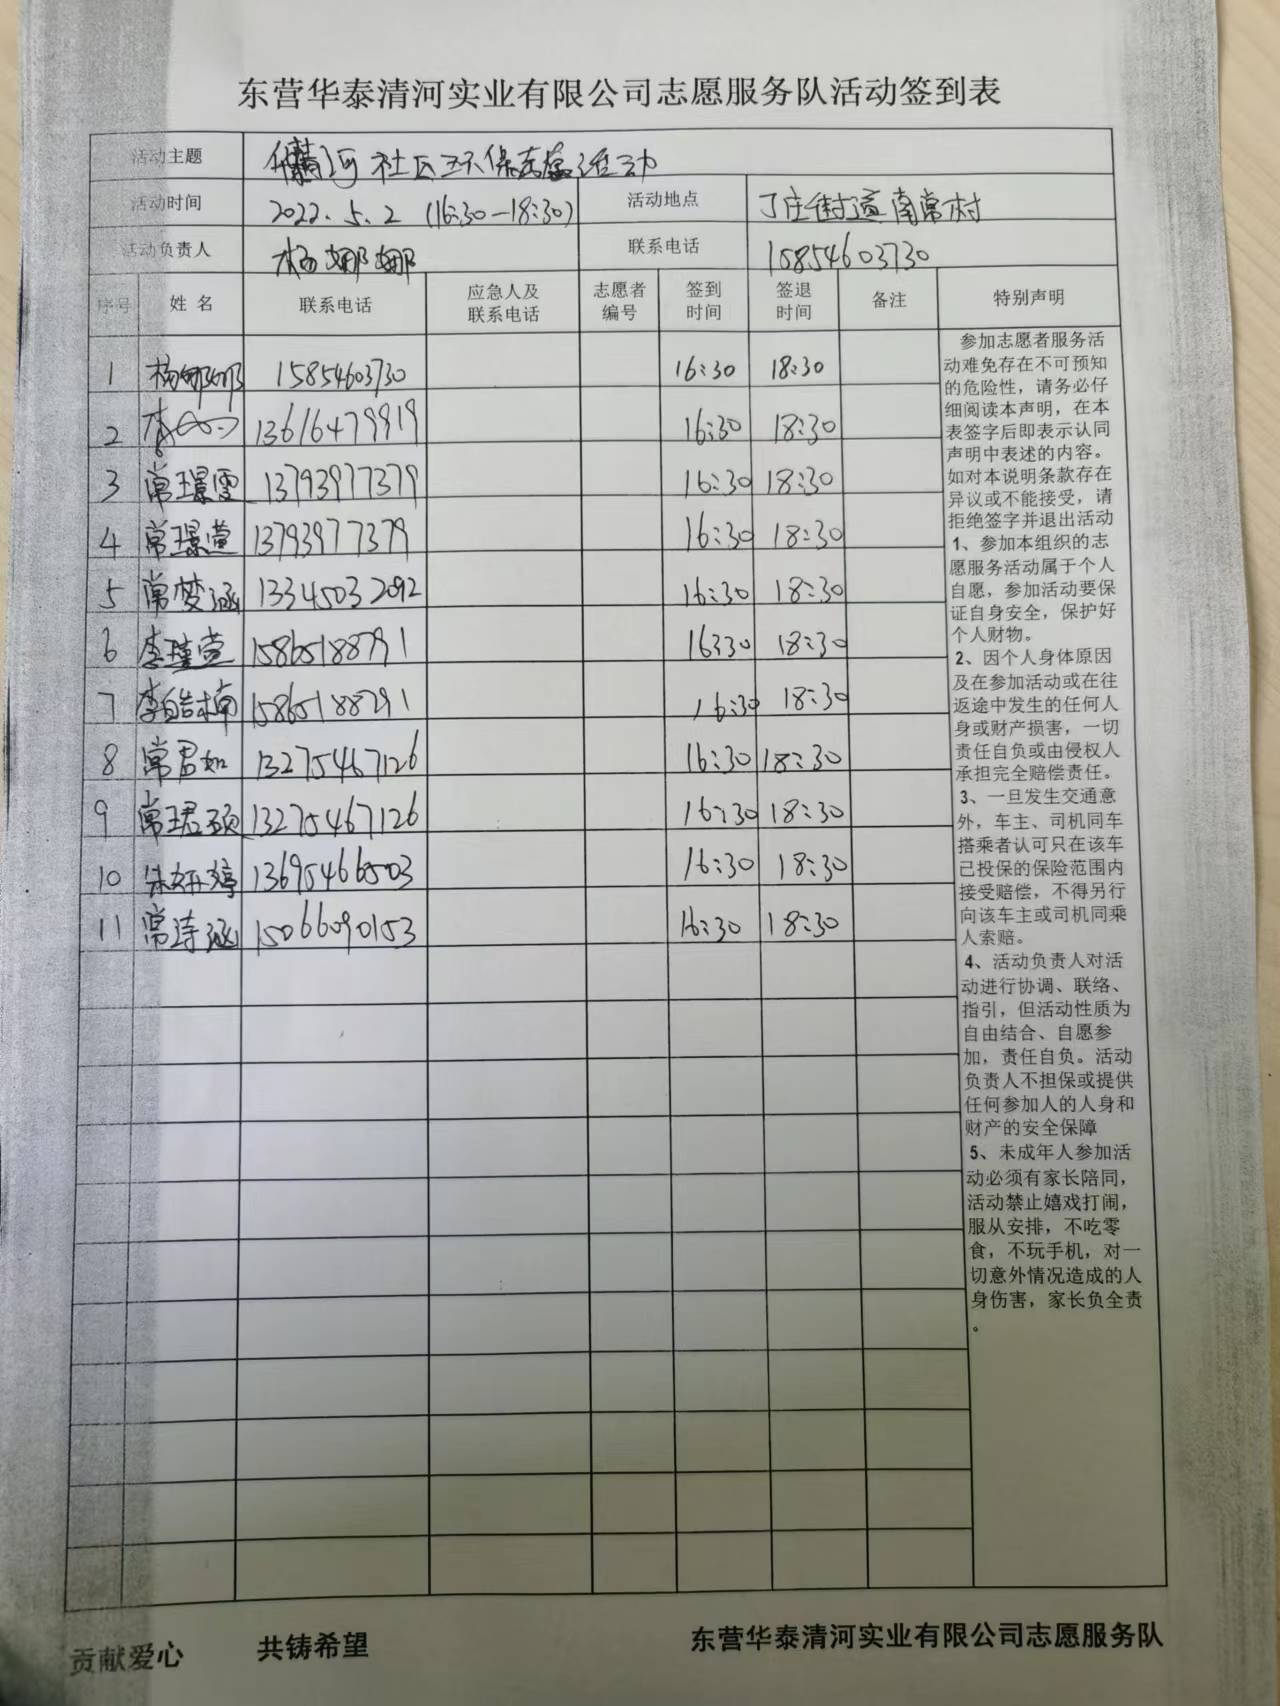 东营华泰清河实业有限公司志愿服务队活动签到表
活动主题 清河社区环保志愿活动
活动时间 2022.5.2 (16:30-18:30) 活动地点 丁庄街道南常村
活动负责人 杨娜娜 联系电话 15854603730
序号 姓名 联系电话 应急人及联系电话 志愿者编号 签到时间 签退时间 备注 特别声明
1 杨娜娜 15854603730 16:30 18:30
2 13616479919 16:30 18:30
3 常璟雯 13793977379 16:30 18:30
4 常璟萱 13793977379 16:30 18:30
5 常梦涵 13345032092 16:30 18:30
6 李瑾萱 15865188791 16:30 18:30
7 李皓楠 15865188791 16:30 18:30
8 常君如 13275467126 16:30 18:30
9 常珺硕 13275467126 16:30 18:30
10 朱妍婷 13695466503 16:30 18:30
11 常诗涵 15066090153 16:30 18:30
参加志愿者服务活
动难免存在不可预知
的危险性，请务必仔
细阅读本声明，在本
表签字后即表示认同
声明中表述的内容。
如对本说明条款存在
异议或不能接受，请
拒绝签字并退出活动
1、参加本组织的志
愿服务活动属于个人
自愿，参加活动要保
证自身安全，保护好
个人财物。
2、因个人身体原因
及在参加活动或在往
返途中发生的任何人
身或财产损害，一切
责任自负或由侵权人
承担完全赔偿责任。
3、一旦发生交通意
外，车主、司机同车
搭乘者认可只在该车
已投保的保险范围内
接受赔偿，不得另行
向该车主或司机同乘
人索赔。
4、活动负责人对活
动进行协调、联络、
指引，但活动性质为
自由结合、自愿参
加，责任自负。活动
负责人不担保或提供
任何参加人的人身和
财产的安全保障
5、未成年人参加活
动必须有家长陪同，
活动禁止嬉戏打闹，
服从安排，不吃零
食，不玩手机，对一
切意外情况造成的人
身伤害，家长负全责
。
贡献爱心 共铸希望 东营华泰清河实业有限公司志愿服务队